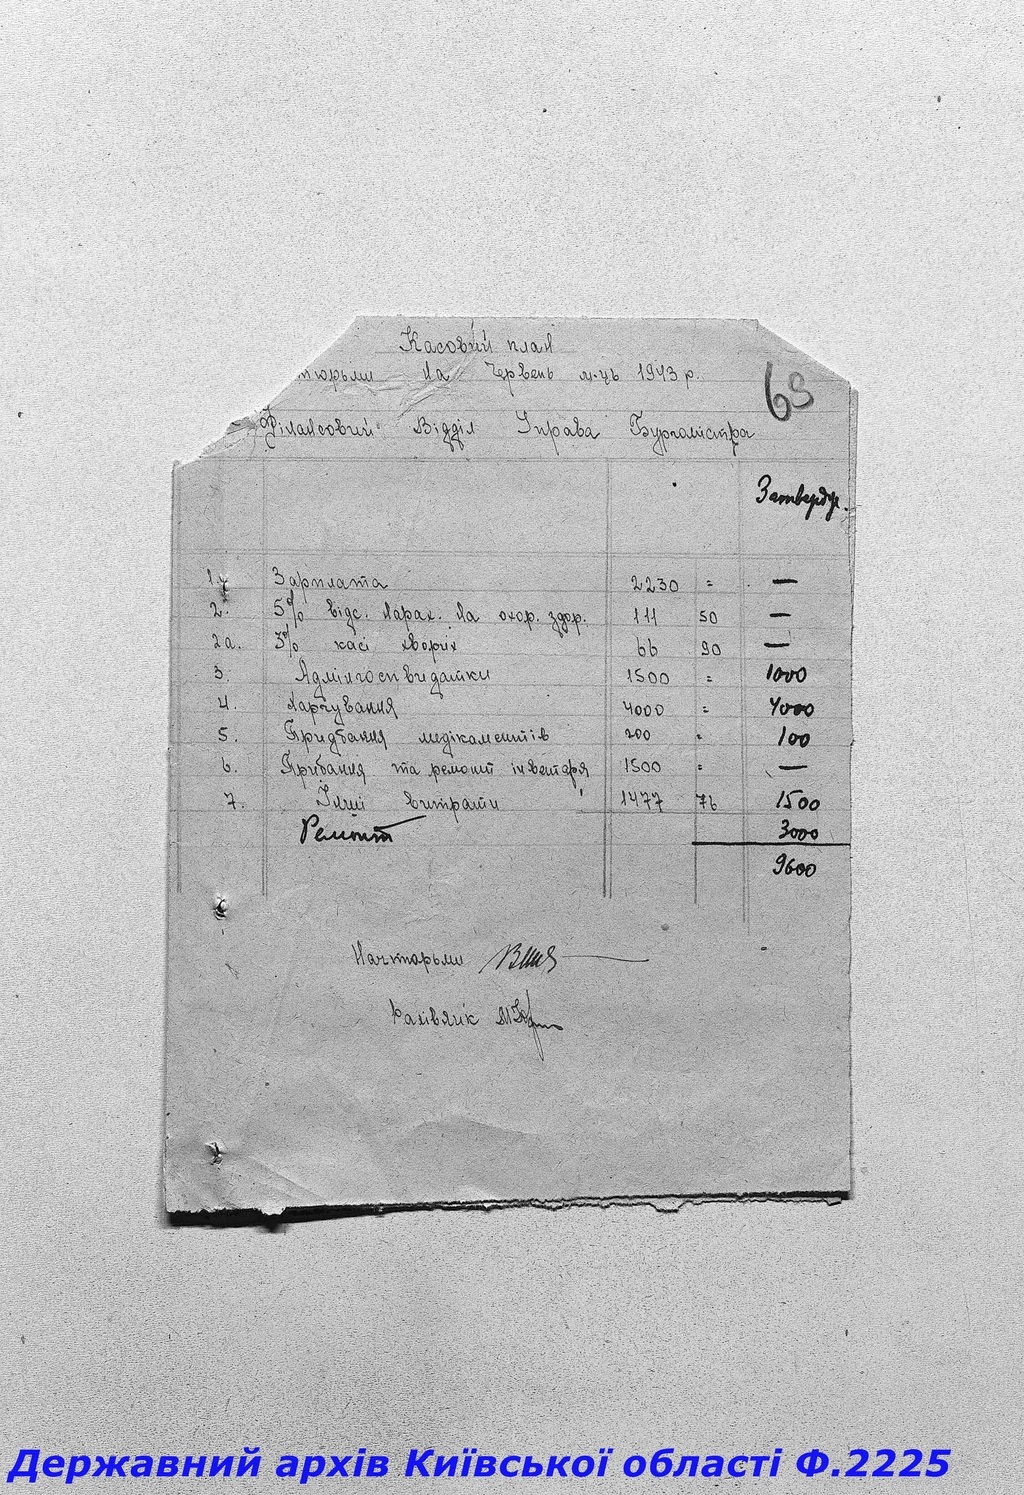 Касовий план
тюрьми На Червень м-ць 1943 р.
63
Фінансовий Відділ Управа Бургомістра
Затвердж.
1. Зарплата 2230 = —
2. 5% відс. Нарах. На охор. здор. 111 50 —
2а. 3% касі хворіх 66 90 —
3. Адмінгоспвидатки 1500 = 1000
4. Харчування 4000 = 4000
5. Придбання медікаментів 200 = 100
6. Прибання та ремонт інвентаря 1500 = —
7. Інші витрати 1477 76 1500
Ремонт 3000
9600
Начтюрьми
Рахівник
Державний архів Київської області Ф.2225